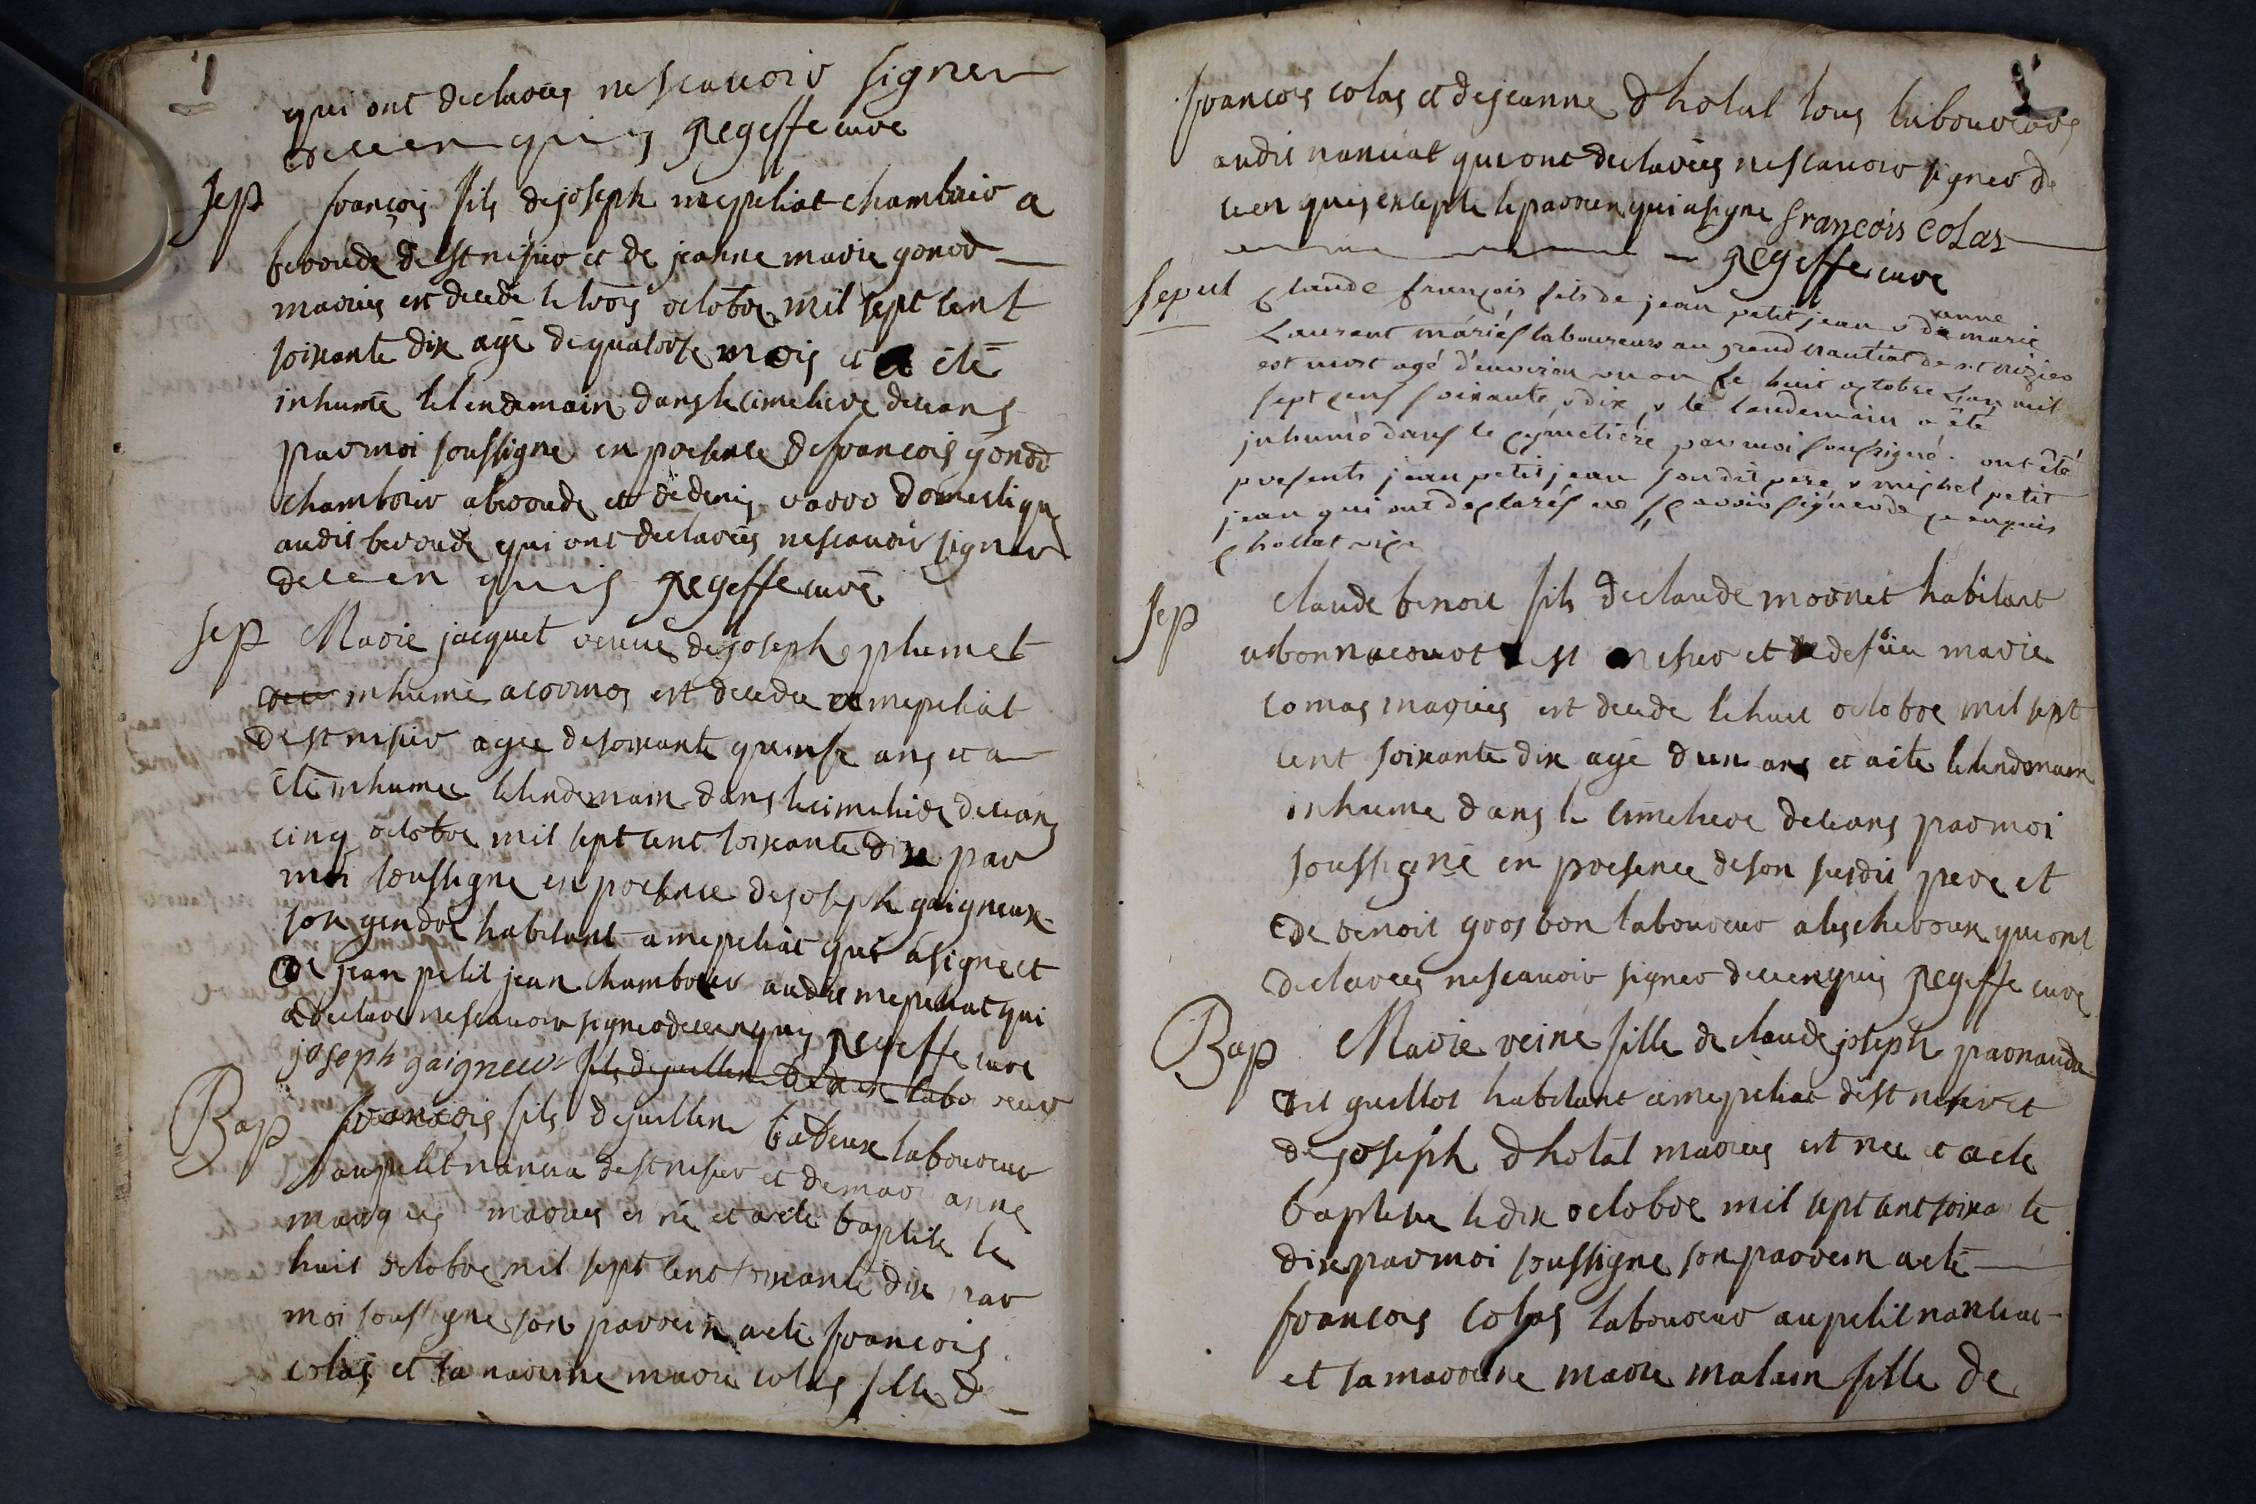 qui ont declarés ne scavoir signer
de ce enquis regeffe curé
sep françois fils de joseph mepeliat chambrier a
beroude de st nisier et de jeanne marie gonod
mariés est decede le trois octobre mil sept cent
soixante dix agé de quatorse mois et a été
inhumé le lendemain dans le cimetiere de ceans
par moi soussigné en presence de francois gonod
chambrier a beroude et de denis domestique
audit beroude qui ont declarés ne scavoir signer
de ce en quis regeffe curé
sep Marie jacquet veuve de joseph plumet
inhumé a cormos est decedee a mepeliat
de st nisier agée de soixante quinse ans et a
été inhumee le lendemain dans le cimetiere de ceans
cinq octobre mil sept cent soixante dix par
moi soussigné en presence de joseph gaigneux
son gendre habitant a mepeliat qui a signé et
de jean petit jean chambrier audit mepeliat qui
a declaré ne scavoir signer de ce enquis regeffe curé
joseph gaigneur fils de guillin badeux laboureur
Bap francois fils de guillin badeux laboureur
au petit nancia de st nisier et de marianne
marques mariés est né et a été baptisé le
huit octobre mil sept cent soixante dix par
moi soussigné son parrein a eté francois
colas et sa mareine marie colas fille de
francois colas et de jeanne dholat tous laboureurs
audit nanciat qui ont declarés ne scavoir signer de
ce en quis excepte le parrein qui a signe françois colas
regeffe curé
sepul claude françois fils de jean petit jean & de marie anne
Laurent mariés laboureurs au grand nantiat de st nizier
est mort agé d'environ un an le huit octobre l'an mil
sept cens soixante & dix & le landemain a été
inhumé dans le cymetiére par moi soussigné. ont été
presents jean petit jean son dit pere & michel petit
jean qui ont declarés ne scavoir signer de ce enquis
chollat vic.
sep claude benoit fils de claude mornet habitant
a bonnacourt st nisier et de marie
comas mariés est decede le huit octobre mil sept
cent soixante dix agé d un ans et a été le lendemain
inhume dans le cimetiere de ceans par moi
soussigné en presence de son susdit pere et
de benoit grosbon laboureur a les cheroux qui ont
declarés ne scavoir signer de ce enquis regeffe curé
Bap Marie reine fille de claude joseph parnaudu
dit guillot habitant a mepeliat de st nisier et
de joseph dholat mariés est nee et a eté
baptisee le dix octobre mil sept cent soixante
dix par moi soussigne son parrein a eté
francois colas laboureur au petit nanciat
et sa marreine marie malain fille de